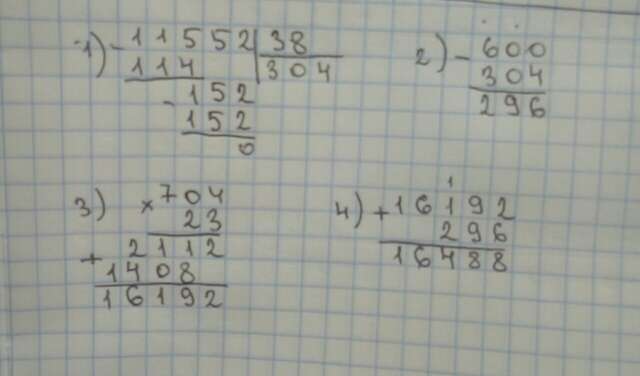 1) - 11552 | 38
114 | 304
- 152
152
0
2) - 600
304
296
3) × 704
23
+ 2112
1408
16192
1
4) + 16192
296
16488